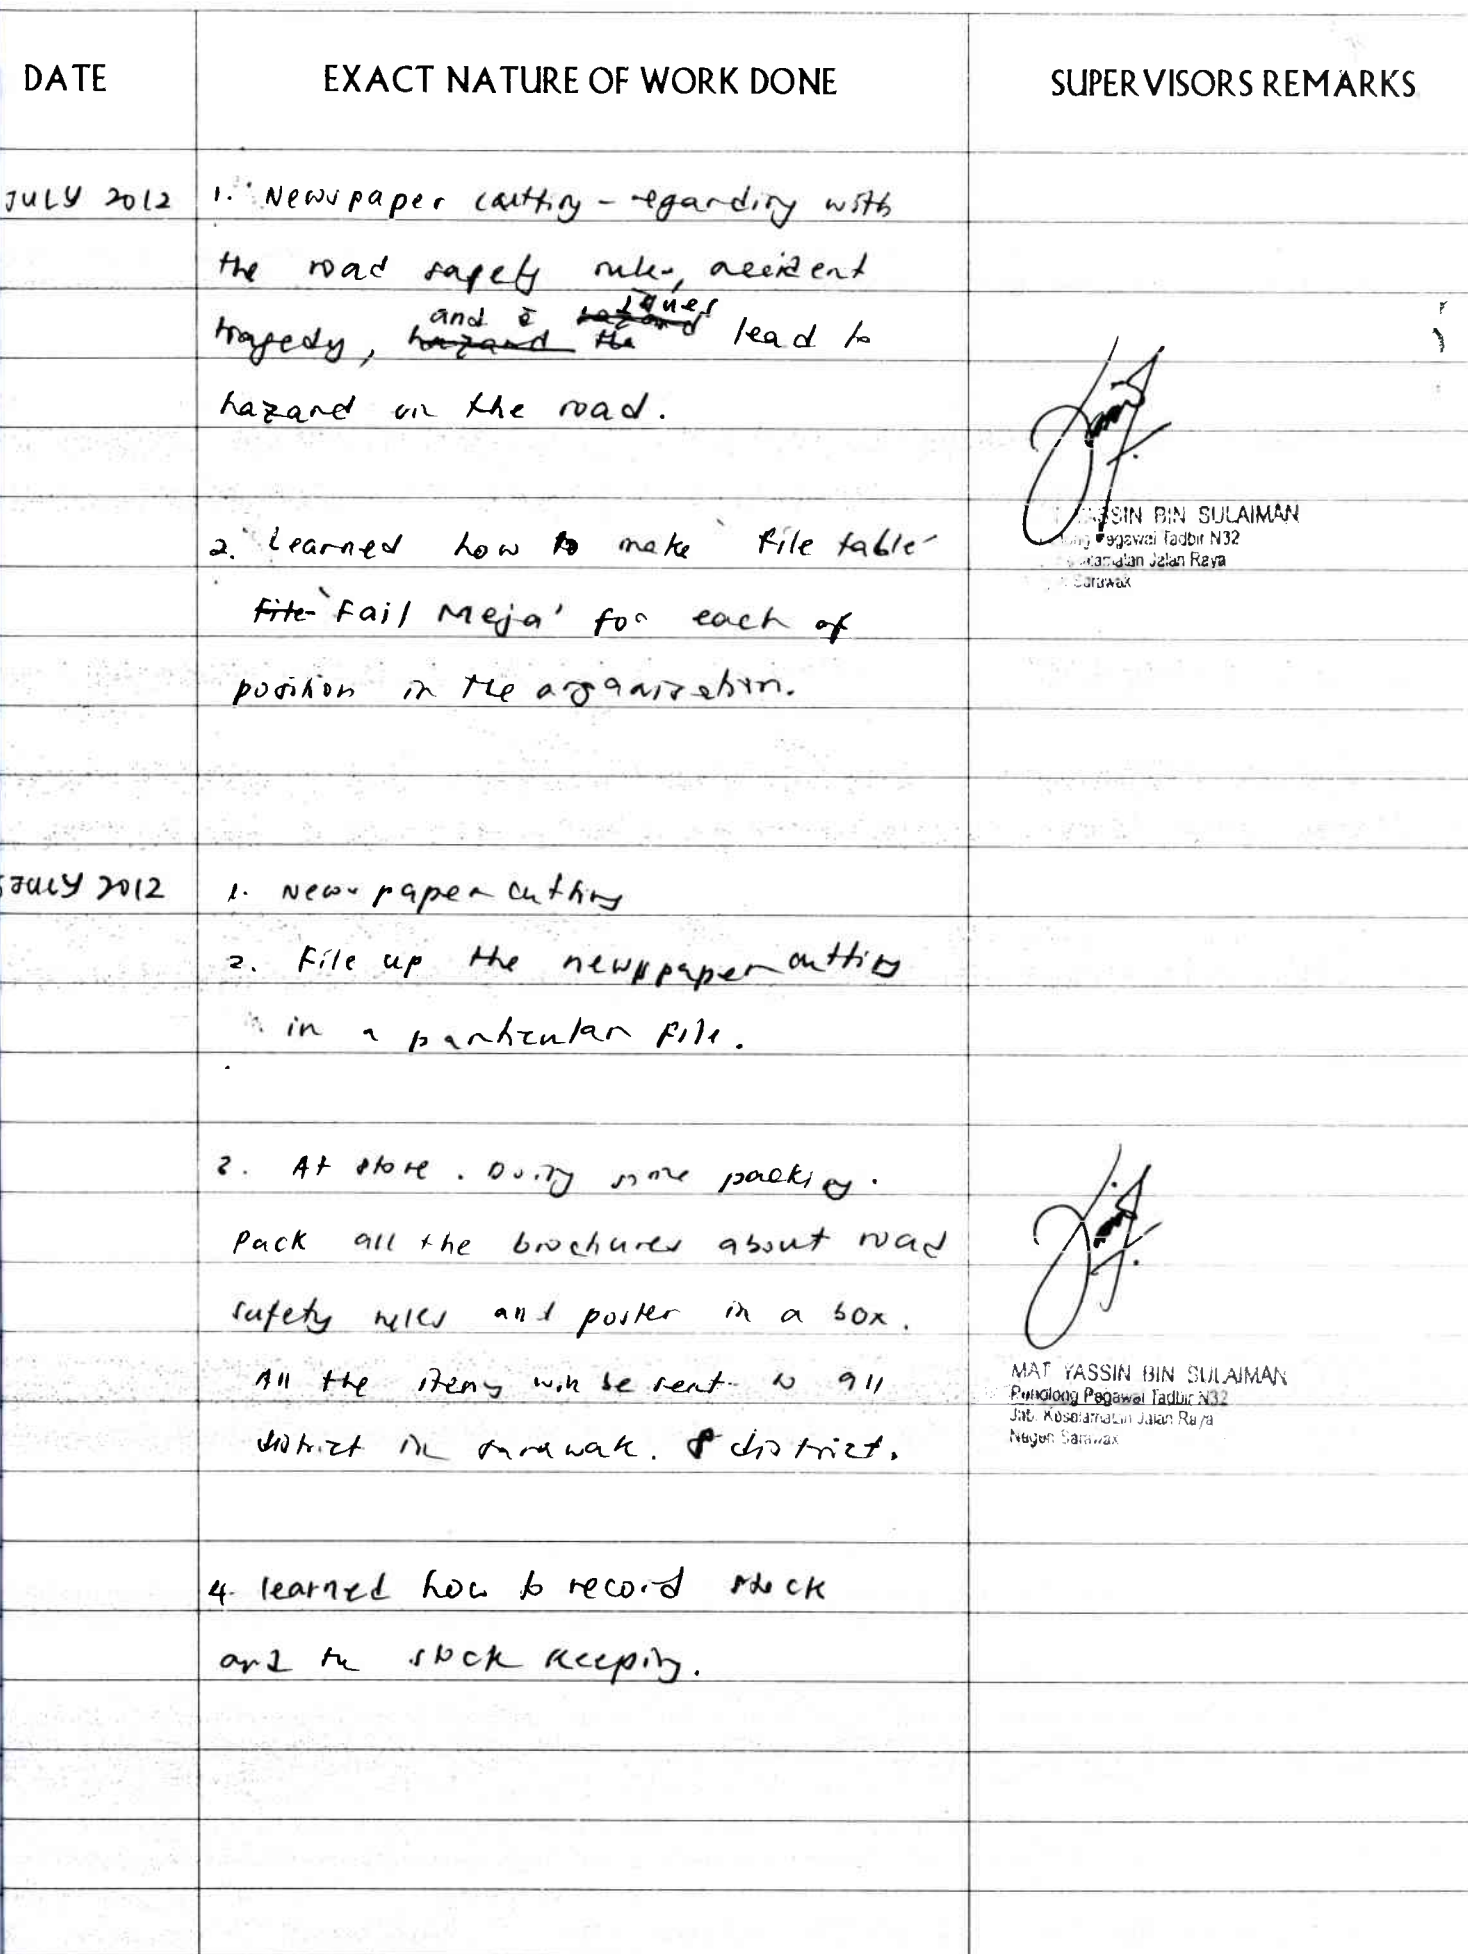 DATE EXACT NATURE OF WORK DONE SUPERVISORS REMARKS
JULY 2012 1. Newspaper cutting - regarding with
the road safety rules, accident
and issues
tragedy, hazard the hazard lead to
hazard on the road.
2. Learned how to make ` file table
file `Fail Meja' for each of
position in the organization.
YASSIN BIN SULAIMAN
Pegawai Tadbir N32
Jalan Raya
Sarawak
JULY 2012 1. Newspaper cutting
2. File up the newspaper cutting
in a particular file.
3. At store. Doing some packing.
Pack all the brochures about road
safety rules and poster in a box.
All the items will be sent to all
district in sarawak. 8 district.
MAT YASSIN BIN SULAIMAN
Penolong Pegawai Tadbir N32
Jab. Keselamatan Jalan Raya
Negeri Sarawak
4. learned how to record stock
and the stock keeping.